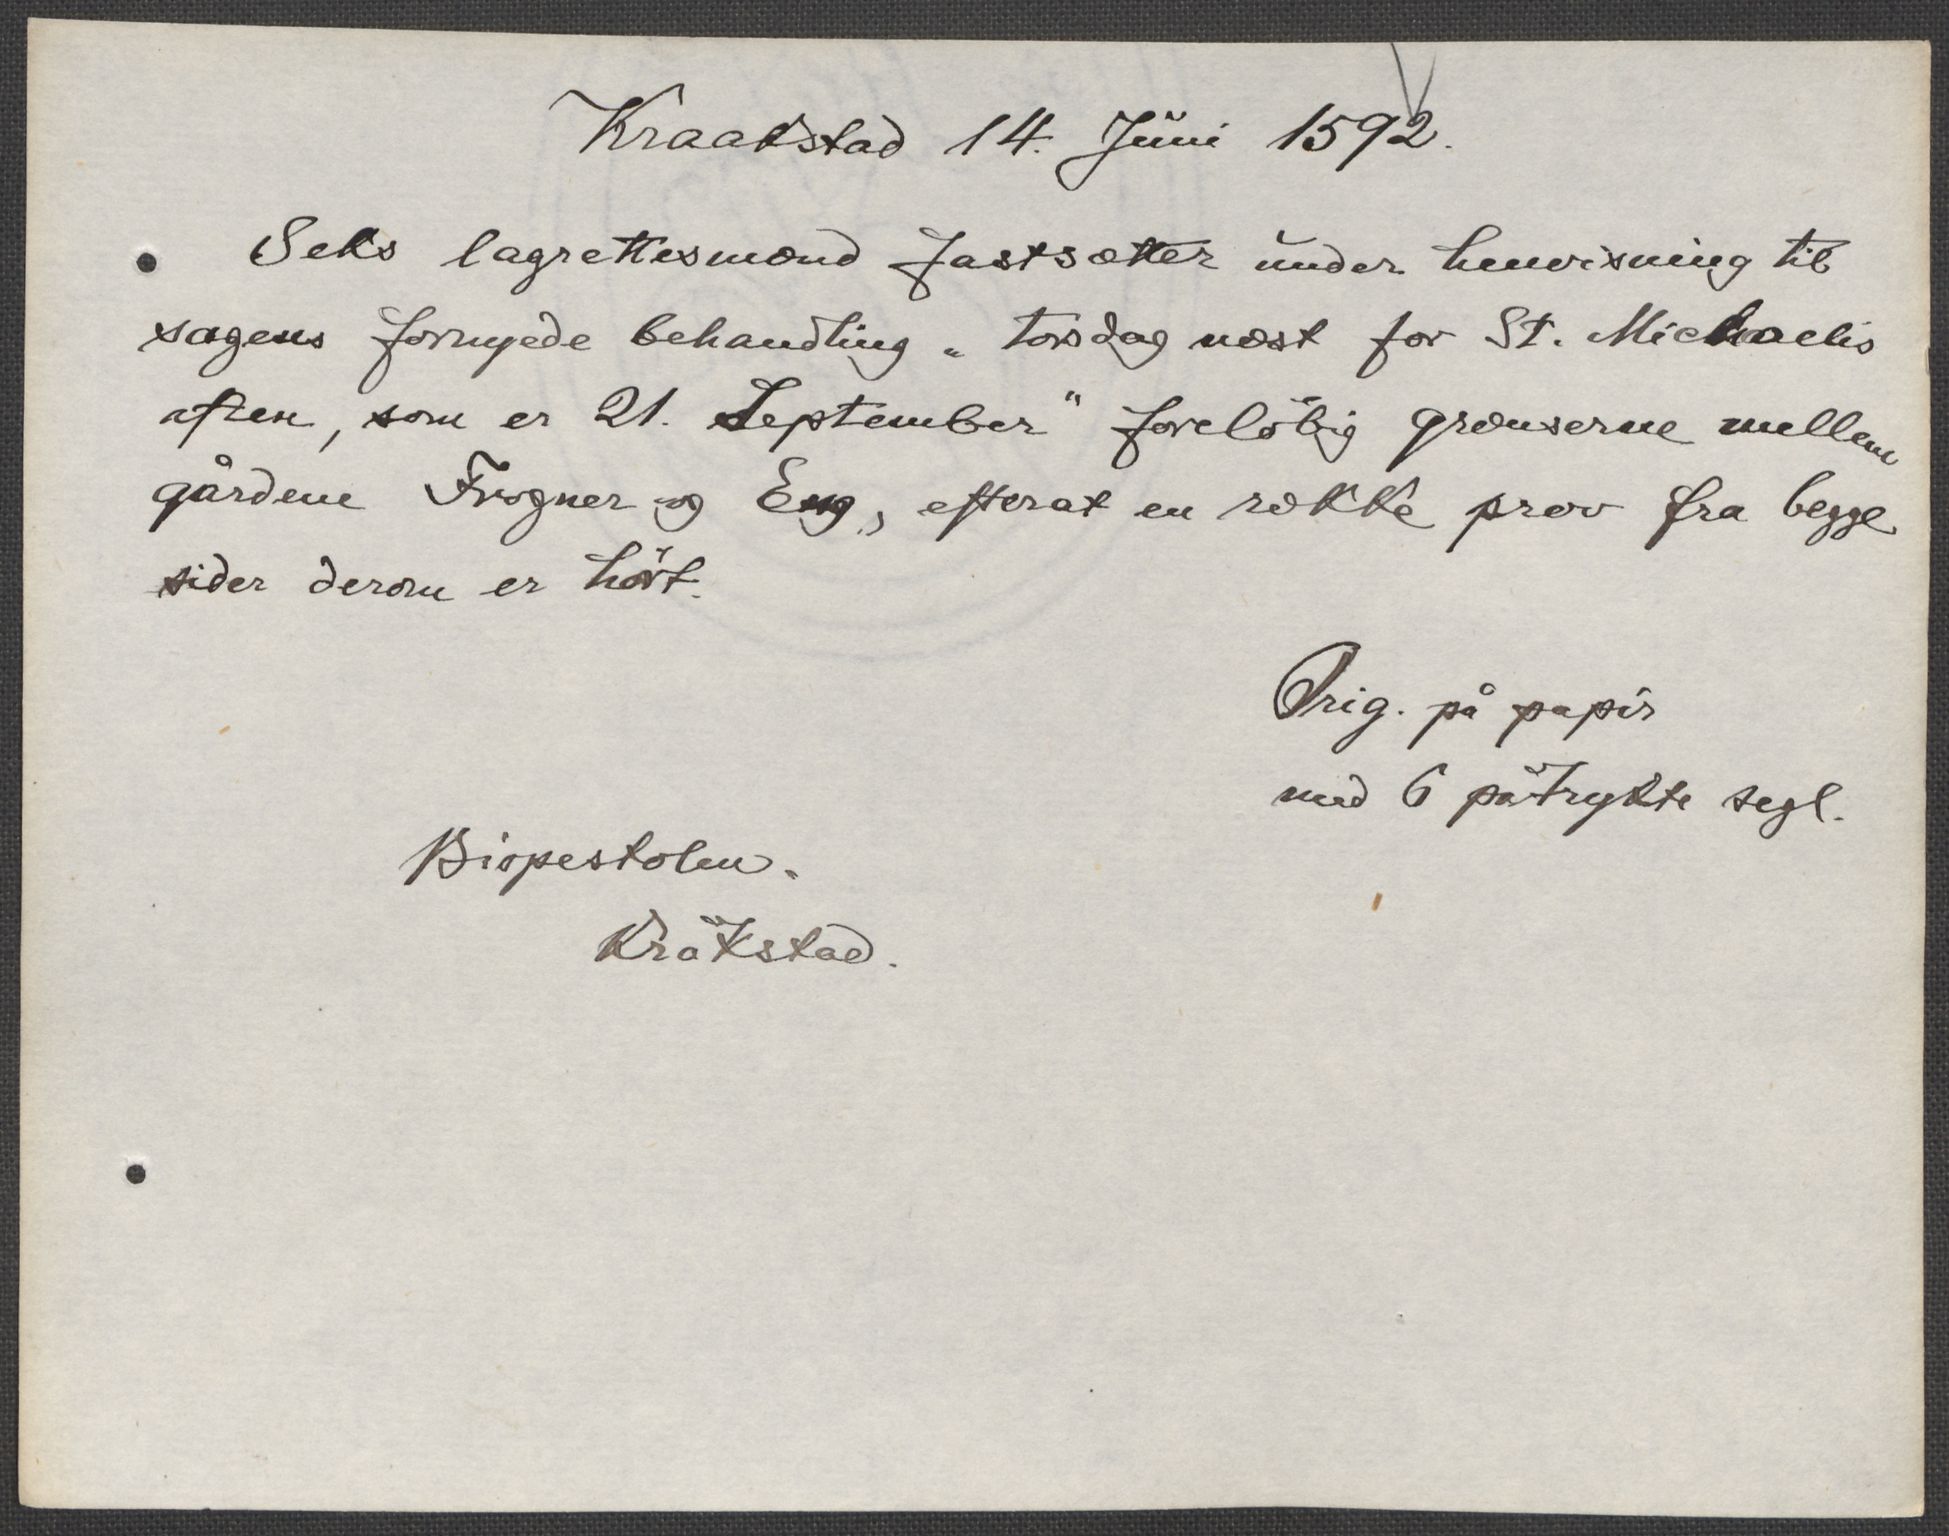 Kraakstad 14. Juni 1592.
Seks lagrettesmænd fastsætter under henvisning til
sagens fornyede behandling „torsdag næst for St. Michaelis
aften, som er 21. September" foreløbig grænserne mellem
gårdene Frogner og Eng, efterat en række prov fra begge
sider derom er hørt.
Orig. på papir
med 6 påtrykte segl.
Bispestolen.
Kråkstad.